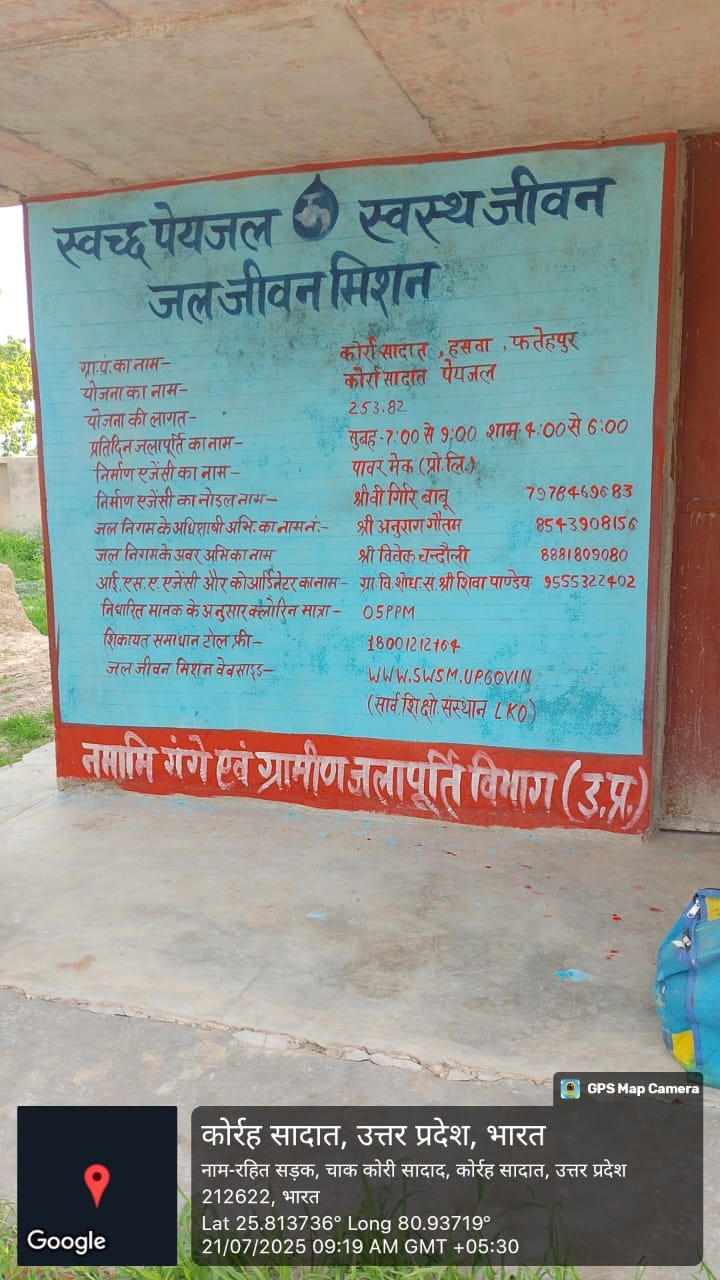 स्वच्छ पेयजल स्वस्थ जीवन
जल जीवन मिशन
ग्रा.पं. का नाम- कोर्रा सादात , हसवा , फतेहपुर
योजना का नाम- कोर्रा सादात पेयजल
योजना की लागत- 253.82
प्रतिदिन जलापूर्ति का नाम- सुबह-7:00 से 9:00 शाम-4:00 से 6:00
निर्माण एजेंसी का नाम- पावर मेक (प्रो.लि.)
निर्माण एजेंसी का नोडल नाम- श्री वी गिरि बाबू 7978469683
जल निगम के अधिशाषी अभि. का नाम नं:- श्री अनुराग गौतम 8543908156
जल निगम के अवर अभि का नाम श्री विवेक चन्दौली 8881809080
आई. एस. ए. एजेंसी और कोआर्डिनेटर का नाम- ग्रा. वि. शोध. स. श्री शिवा पाण्डेय 9555322402
निधारित मानक के अनुसार क्लोरिन मात्रा- 05PPM
शिकायत समाधान टोल फ्री- 18001212164
जल जीवन मिशन वेवसाइड- WWW.SWSM.UP.GOV.IN
(सार्व. शिक्षो संस्थान LKO)
नमामि गंगे एवं ग्रामीण जलापूर्ति विभाग (उ.प्र.)
GPS Map Camera
कोर्रह सादात, उत्तर प्रदेश, भारत
नाम-रहित सड़क, चाक कोरी सादाद, कोर्रह सादात, उत्तर प्रदेश
212622, भारत
Lat 25.813736° Long 80.93719°
21/07/2025 09:19 AM GMT +05:30
Google